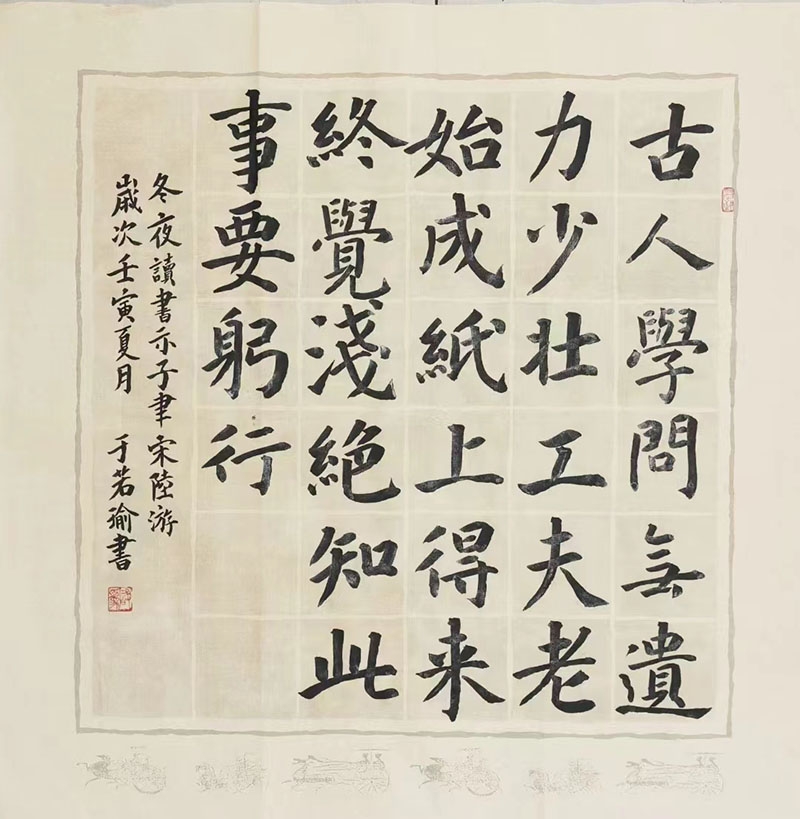 古人學問無遺
力少壯工夫老
始成紙上得来
終覺淺絶知此
事要躬行
冬夜讀書示子聿 宋陸游
歲次壬寅夏月 于若瑜書